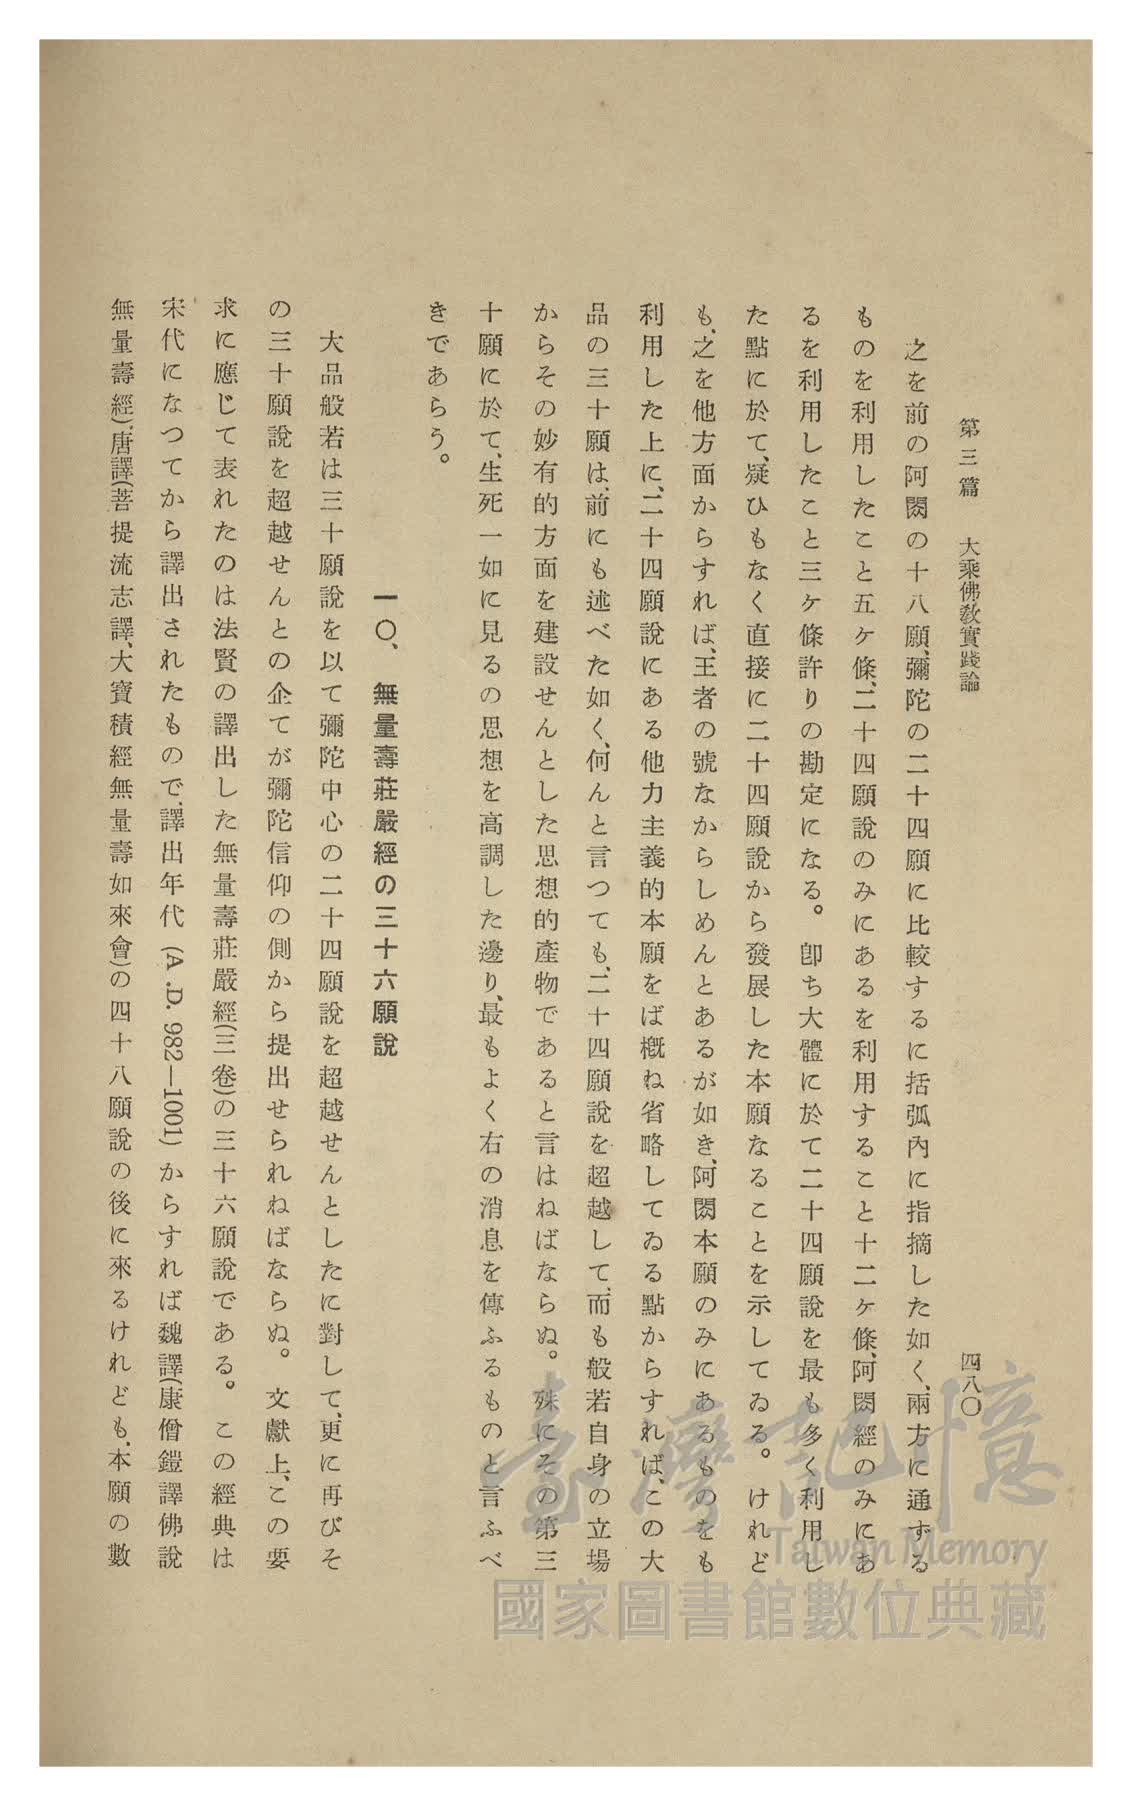 第三篇　大乘佛敎實踐論
四八〇
之を前の阿閦の十八願、彌陀の二十四願に比較するに括弧內に指摘した如く、兩方に通ずる
ものを利用したこと五ヶ條、二十四願說のみにあるを利用すること十二ヶ條、阿閦經のみにあ
るを利用したこと三ヶ條許りの勘定になる。卽ち大體に於て二十四願說を最も多く利用し
た點に於て、疑ひもなく直接に二十四願說から發展した本願なることを示してゐる。けれど
も、之を他方面からすれば、王者の號なからしめんとあるが如き、阿閦本願のみにあるものをも
利用した上に、二十四願說にある他力主義的本願をば槪ね省略してゐる點からすれば、この大
品の三十願は、前にも述べた如く、何んと言つても、二十四願說を超越して、而も般若自身の立場
からその妙有的方面を建設せんとした思想的產物であると言はねばならぬ。殊にその第三
十願に於て、生死一如に見るの思想を高調した邊り、最もよく右の消息を傳ふるものと言ふべ
きであらう。
一〇、無量壽莊嚴經の三十六願說
大品般若は三十願說を以て彌陀中心の二十四願說を超越せんとしたに對して、更に再びそ
の三十願說を超越せんとの企てが彌陀信仰の側から提出せられねばならぬ。文獻上、この要
求に應じて表れたのは法賢の譯出した無量壽莊嚴經(三卷)の三十六願說である。この經典は
宋代になつてから譯出されたもので、譯出年代 (A .D. 982—1001) からすれば魏譯(康僧鎧譯佛說
無量壽經)、唐譯(菩提流志譯、大寶積經無量壽如來會)の四十八願說の後に來るけれども、本願の數
臺灣記憶
Taiwan Memory
國家圖書館數位典藏